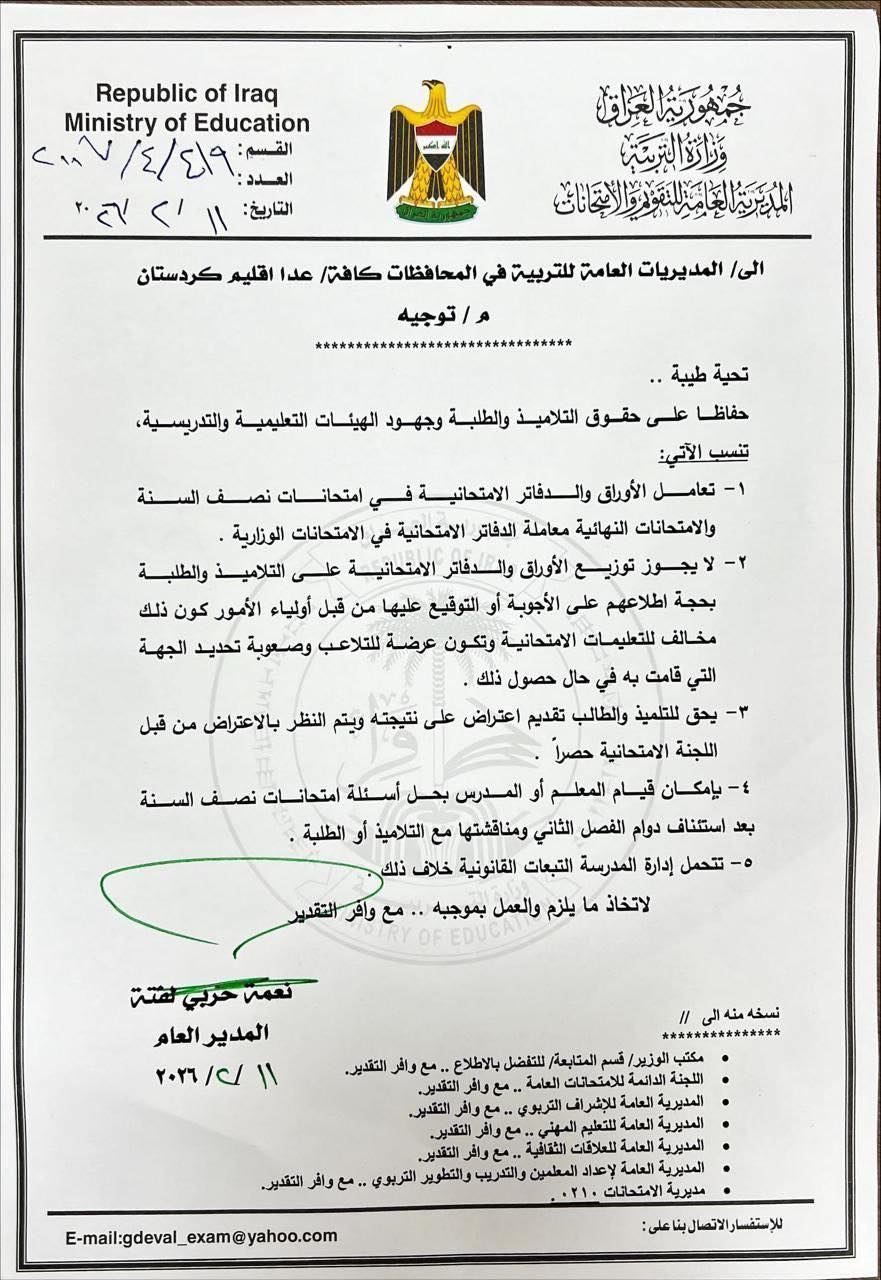 Republic of Iraq
Ministry of Education
جمهورية العراق
وزارة التربية
المديرية العامة للتقويم والامتحانات
القسم:
العدد:
التاريخ: ١١ / ٢ / ٢٠٢٦
الى/ المديريات العامة للتربية في المحافظات كافة/ عدا اقليم كردستان
م / توجيه
********************************
تحية طيبة ..
حفاظا على حقوق التلاميذ والطلبة وجهود الهيئات التعليمية والتدريسية،
تنسب الآتي:
١- تعامل الأوراق والدفاتر الامتحانية في امتحانات نصف السنة
والامتحانات النهائية معاملة الدفاتر الامتحانية في الامتحانات الوزارية .
٢- لا يجوز توزيع الأوراق والدفاتر الامتحانية على التلاميذ والطلبة
بحجة اطلاعهم على الأجوبة أو التوقيع عليها من قبل أولياء الأمور كون ذلك
مخالف للتعليمات الامتحانية وتكون عرضة للتلاعب وصعوبة تحديد الجهة
التي قامت به في حال حصول ذلك .
٣- يحق للتلميذ والطالب تقديم اعتراض على نتيجته ويتم النظر بالاعتراض من قبل
اللجنة الامتحانية حصراً .
٤- بإمكان قيام المعلم أو المدرس بحل أسئلة امتحانات نصف السنة
بعد استئناف دوام الفصل الثاني ومناقشتها مع التلاميذ أو الطلبة .
٥- تتحمل إدارة المدرسة التبعات القانونية خلاف ذلك .
لاتخاذ ما يلزم والعمل بموجبه .. مع وافر التقدير
نعمة حربي لفتة
المدير العام
١١ / ٢ / ٢٠٢٦
نسخه منه الى //
***************
• مكتب الوزير/ قسم المتابعة/ للتفضل بالاطلاع .. مع وافر التقدير.
• اللجنة الدائمة للامتحانات العامة .. مع وافر التقدير.
• المديرية العامة للإشراف التربوي .. مع وافر التقدير.
• المديرية العامة للتعليم المهني .. مع وافر التقدير.
• المديرية العامة للعلاقات الثقافية .. مع وافر التقدير.
• المديرية العامة لإعداد المعلمين والتدريب والتطوير التربوي .. مع وافر التقدير.
• مديرية الامتحانات ٠٢١٠ .
للإستفسار الاتصال بنا على :
E-mail:gdeval_exam@yahoo.com